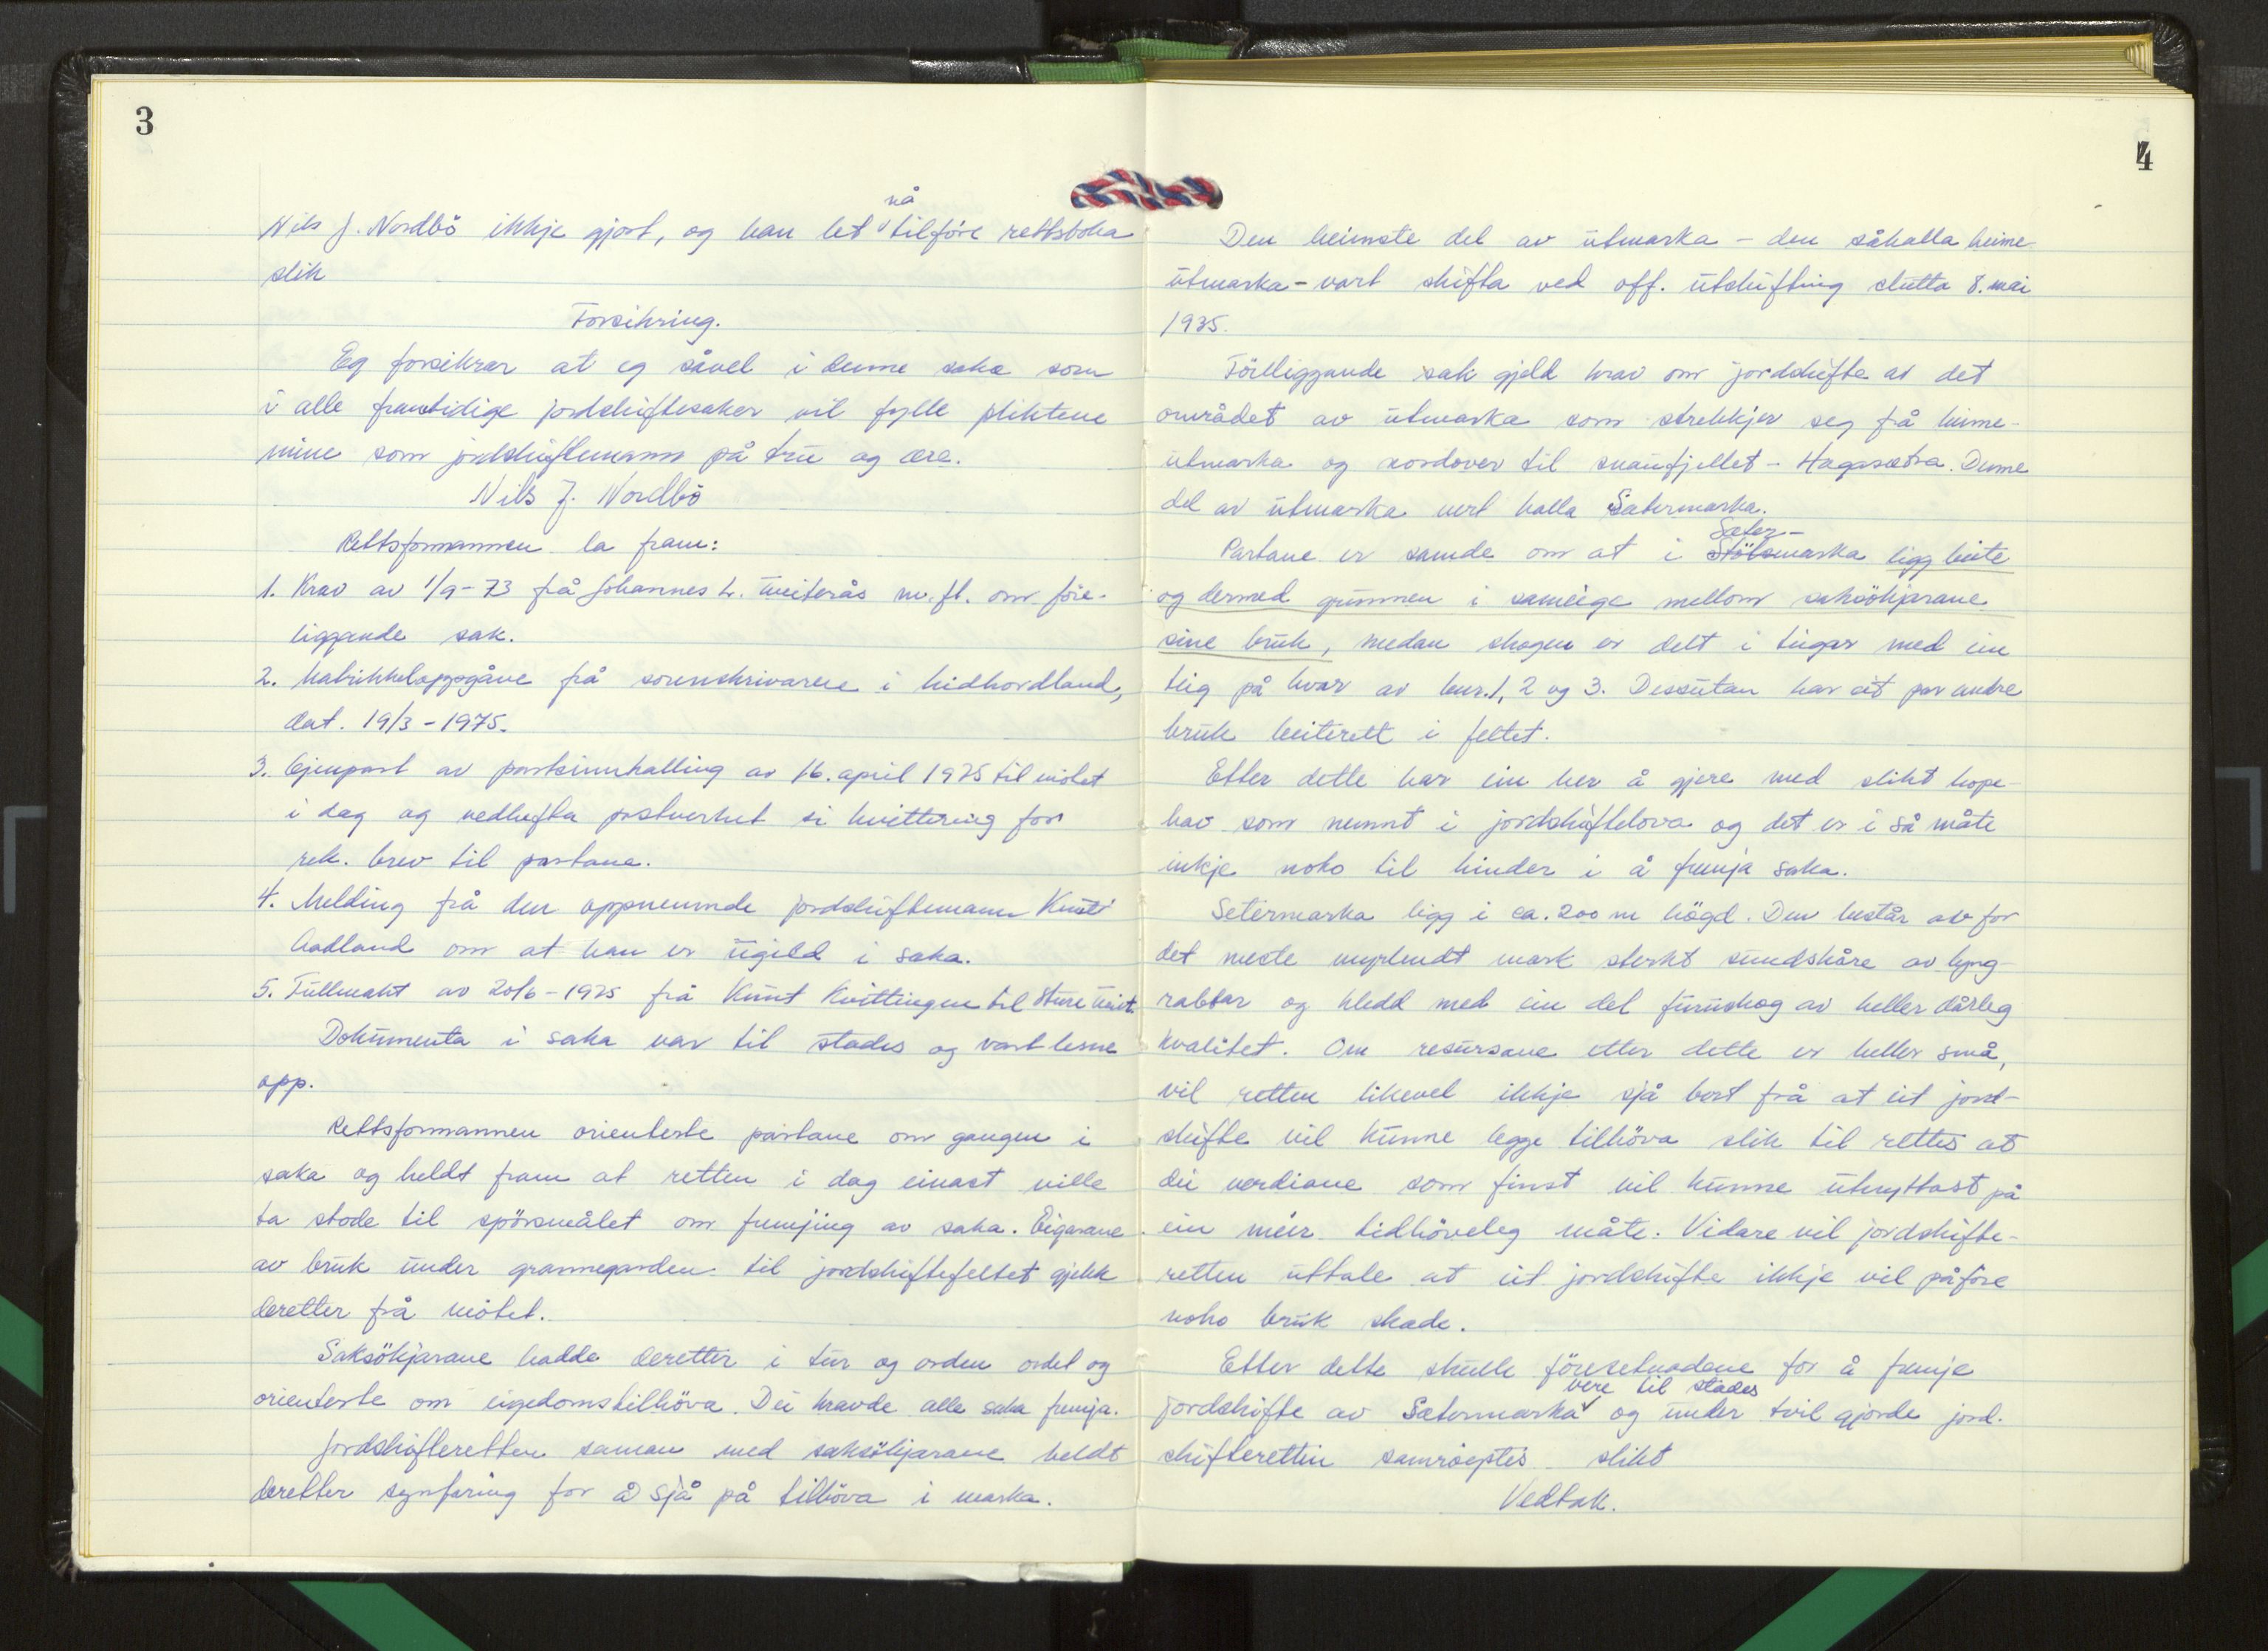 3
Nils J. Nordbö ikkje gjort, og han let nå tilföre rettsboka
slik
Forsikring.
Eg forsikrar at eg såvel i denne saka som
i alle framtidige jordskiftesaker vil fylle pliktene
mine som jordskiftemann på tru og ære.
Nils J. Nordbö
Rettsformannen la fram:
1. Krav av 1/9-73 frå Johannes L. Tveiterås m.fl. om före-
liggande sak.
2. Matrikkeloppgåve frå sorenskrivaren i Midhordland,
dat. 19/3-1975.
3. Gjenpart av partsinnkalling av 16. april 1975 til mötet
i dag og vedhefta postverket si kvittering for
rek. brev til partane.
4. Melding frå den oppnemnde jordskiftemann Knut
Aadland om at han er ugild i saka.
5. Fullmakt av 20/6-1975 frå Knut Kvittingen til Sture Tveit.
Dokumenta i saka var til stades og vart lesne
opp.
Rettsformannen orienterte partane om gangen i
saka og heldt fram at retten i dag einast ville
ta stode til spörsmålet om fremjing av saka. Eigarane
av bruk under grannegarden til jordskiftefeltet gjekk
deretter frå mötet.
Saksökjarane hadde deretter i tur og orden ordet og
orienterte om eigedomstilhöva. Dei kravde alle saka fremja.
Jordskifteretten saman med saksökjarane heldt
deretter synfaring for å sjå på tilhöva i marka.
4
Den heimste del av utmarka - den såkalla heime-
utmarka - vart skifta ved off. utskifting slutta 8. mai
1935.
Förelliggande sak gjeld krav om jordskifte av det
området av utmarka som strekkjer seg frå heime-
utmarka og nordover til snaufjellet - Hagasætra. Denne
del av utmarka vert kalla Sætermarka.
Sæter-
Partane er samde om at i Stölsmarka ligg beite
og dermed grunnen i sameige mellom saksökjarane
sine bruk, medan skogen er delt i teigar med ein
teig på kvar av bnr. 1, 2 og 3. Dessutan har eit par andre
bruk beiterett i feltet.
Etter dette har ein her å gjere med slikt hope-
hav som nemnt i jordskiftelova og det er i så måte
inkje noko til hinder i å fremja saka.
Setermarka ligg i ca. 200 m högd. Den består av for
det meste myrlendt mark sterkt sundskåre av lyng-
rabbar og kledd med ein del furuskog av heller dårleg
kvalitet. Om resursane etter dette er heller små,
vil retten likevel ikkje sjå bort frå at eit jord-
skifte vil kunne legge tilhöva slik til rettes at
dei verdiane som finst vil kunne utnyttast på
ein meir tidhöveleg måte. Vidare vil jordskifte-
retten uttale at eit jordskifte ikkje vil påföre
noko bruk skade.
Etter dette skulle föresetnadene for å fremje
vere til stades
jordskifte av Sætermarka og under tvil gjorde jord-
skifteretten samröystes slikt
Vedtak.